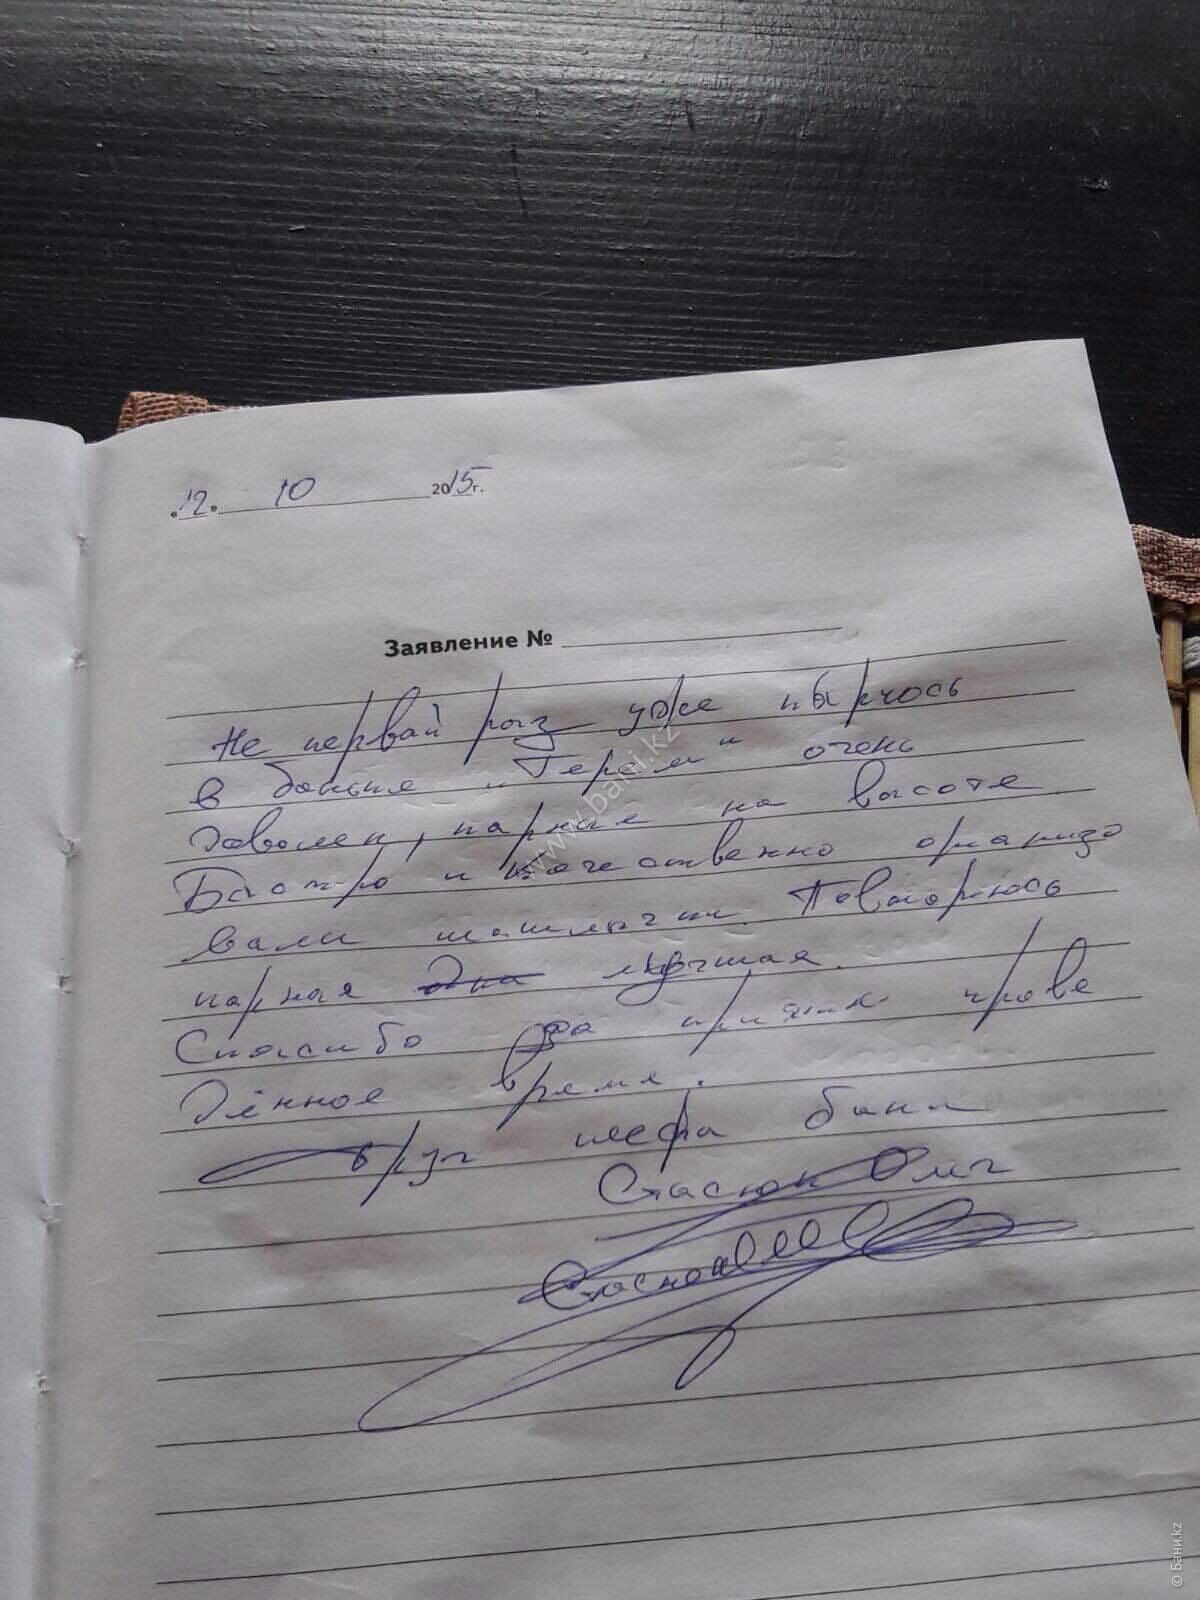 «12» 10 2015г.
Заявление №
Не первай раз уже парюсь
в баньке "Терем" очень
доволен, парные на высоте.
Быстро и качественно организо
вали шашлычки. Повторюсь
парная одна лучшая.
Спасибо за прове
дённое время.
друг шефа бани
Стасюк Олег
Стасюк
www.bani.kz
© Бани.kz